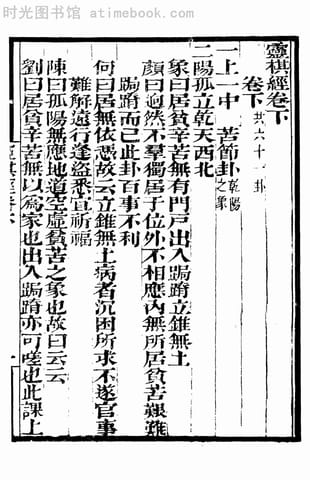 时光图书馆 www.atimebook.com
靈棋經卷下
卷下 共六十一卦
一上一中 苦節卦 乾陽之象
二陽孤立乾天西北
象曰居貧辛苦無有門戶出入跼蹐立錐無土
顏曰逈然不羣獨居于位外不相應內無所居貧苦艱難
跼蹐而已此卦百事不利
何曰居無依憑故云立錐無土病者沉困所求不遂官事
難解遠行逢盜悉宜祈福
陳曰孤陽無應地道空虛貧苦之象也故曰云云
劉曰居貧辛苦無以爲家也出入跼蹐亦可嗟也此課上